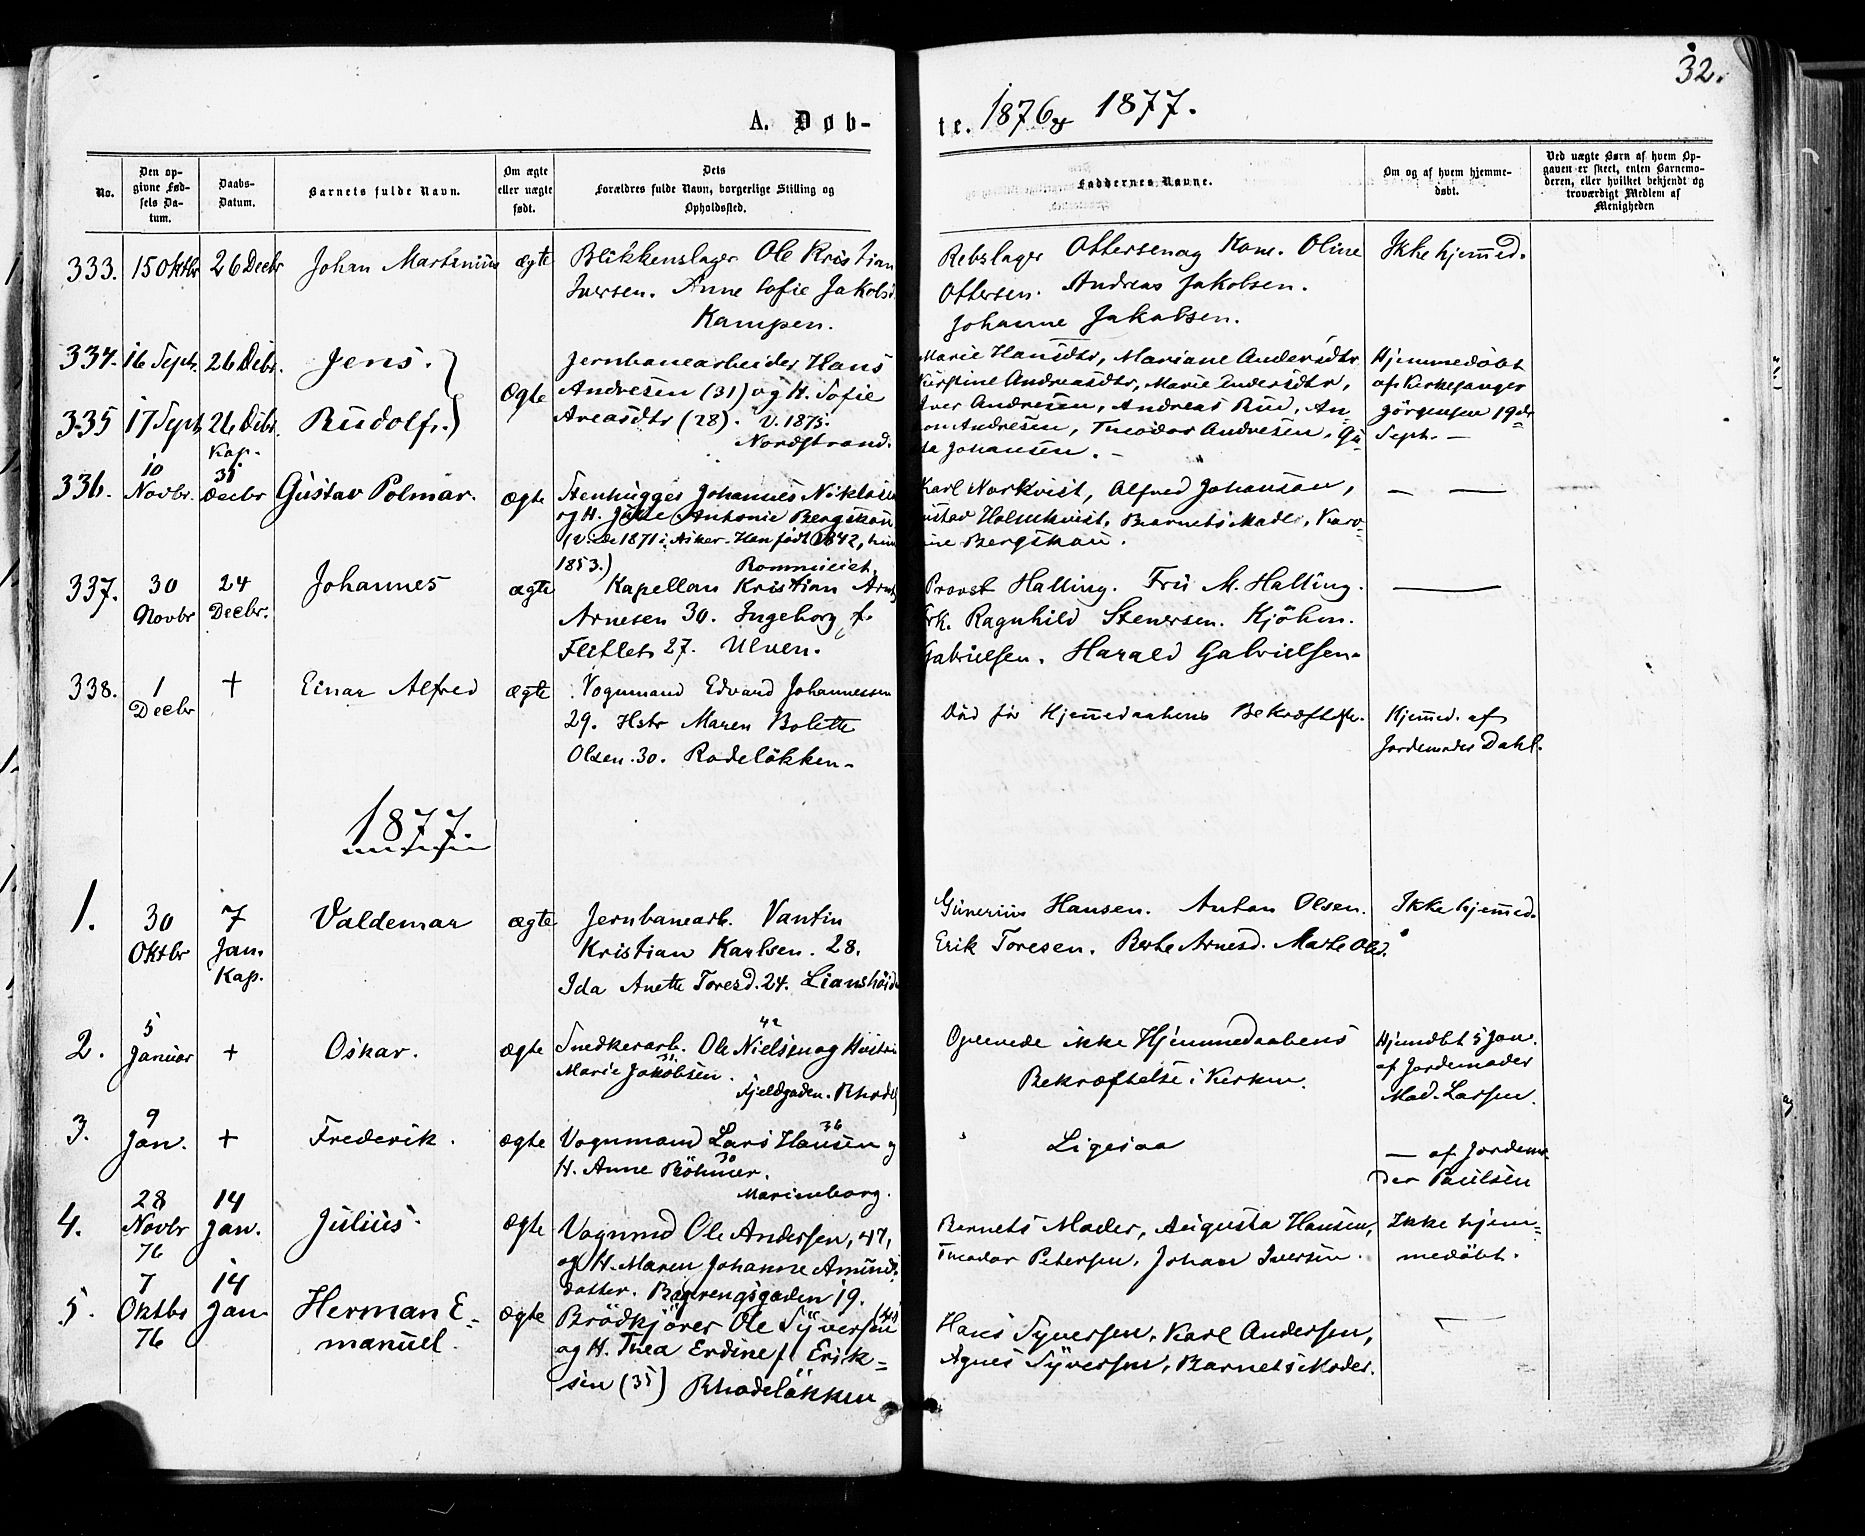 32.
A. Døb-
te. 1876 & 1877.
No.
Den op-
givne Fød-
sels Da-
tum.
Daabs-
Datum.
Barnets fulde Navn.
Om ægte
eller uægte
født.
Dets
Forældres fulde Navn, borgerlige Stilling og
Opholdssted.
Faddernes Navne.
Om og af hvem hjemme-
døbt.
Ved uægte Børn af hvem Op-
gaven er skeet, enten Barnemo-
deren, eller hvilket bekjendt og
troværdigt Medlem af
Menigheden
333. 15 Oktbr 26 Decbr Johan Martinius ægte
Blikkenslager Ole Kristian
Iversen. Anne Sofie Jakobsd
Kampen.
Rebslager Ottersen og Kone. Oline
Ottersen. Andreas Jakobsen.
Johanne Jakobsen.
Ikke hjemmed.
334. 16 Sept. 26 Debr. Jens.
335 17 Sept. 26 Debr. Rudolf. ægte
Kap.
Jernbanearbeider Hans
Andresen (31) og H. Sofie
Areasdtr (28). V. 1875.
Nordstrand.
Marie Hansdtr, Mariane Andersdtr
Kirstine Andreasdtr, Marie Andersdtr,
Iver Andresen, Andreas Rud, An-
Andresen, Theodor Andresen, Gu-
Johansen.
Hjemmedöbt
af Kirkesanger
Jörgensen 19de
Sept. —
336. 10
Novbr. 31
Decbr Gustav Polmar. ægte
Stenhugger Johannes Niklasen
og H. Julie Antonie Bergskau
(V. de 1871 i Asker. Han födt 1842, hun
1853.)
Karl Norkvist, Alfred Johansen,
Gustav Holmkvist, Barnets Moder, Karo-
line Bergskau.
— —
337. 30
Novbr 24
Decbr. Johannes ægte
Kapellan Kristian
Arnesen 30. Ingeborg f.
Fleflet 27. Ulven.
Provst Halling. Fru M. Halling.
Frk. Ragnhild Stenersen. Kjöbm.
Gabrielsen. Harald Gabrielsen.
—
338. 1
Decbr + Einar Alfred ægte
Vognmand Edvard Johannessen
29. Hstr Maren Bolette
Olsen. 30. Rodelökken.
Död för Hjemmedaabens Bekræftelse.
Hjemmed. af
Jordemoder Dahl.
1877.
1. 30
Oktbr 7
Jan.
Kap. Valdemar ægte
Jernbanearb. Vantin
Kristian Karlsen. 28.
Ida Anette Toresd. 24. Lianshöide
Gunerius Hansen. Anton Olsen.
Erik Toresen. Berte Arnesd. Marte Olsd.
Ikke hjemmed.
2. 5
Januar + Oskar. ægte
Snedkerarb. Ole Nielsen 42 og Hustru
Marie Jakobsen.
Fjeldgaden. Rhodel
Oplevede ikke Hjemmedaabens
Bekræftelse i Kirken.
Hjemdbt 5 Jan.
af Jordemoder
Mad. Larsen.
3. 9
Jan. + Frederik. ægte
Vognmand Lars Hansen 36 og
H. Anne Böhmer. 30
Marienborg.
Ligesaa
— af Jordemo-
der Paulsen
4. 28
Novbr
76 14
Jan. Julius. ægte
Vognmd Ole Andersen, 47,
og H. Maren Johanne Amunds-
datter. 19.
Barnets Moder, Augusta Hansen,
Theodor Petersen, Johan Iversen.
Ikke hjem-
medöbt.
5. 7
Oktbr
76 14
Jan Herman E-
manuel. ægte
Brödkjörer Ole Syversen
og H. Thea Erdine f. Erik-
sen (35) Rhodelökken
Hans Syversen, Karl Andersen,
Agnes Syversen, Barnets Moder.
—